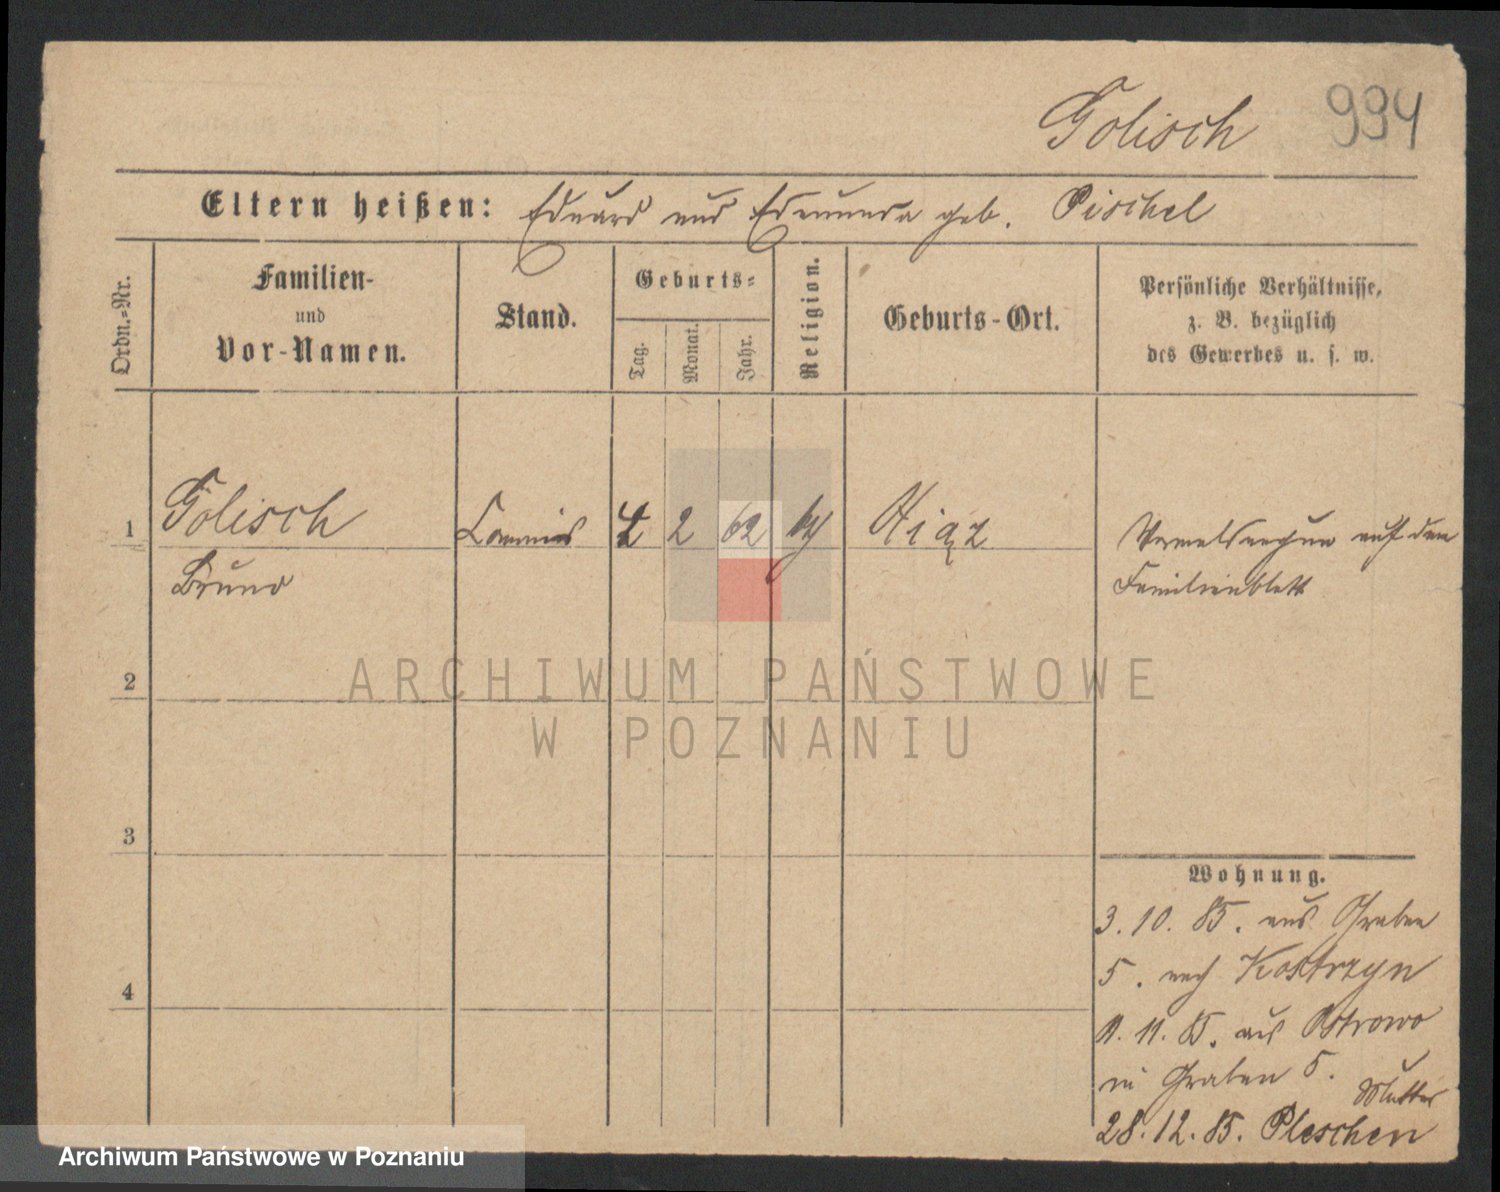 Golisch 994
Eltern heißen: Eduard und Edmunda geb. Pischel
Ordn.-Nr.
Familien-
und
Vor-Namen.
Stand.
Geburts-
Tag.
Monat.
Jahr.
Religion.
Geburts-Ort.
Persönliche Verhältnisse,
z. B. bezüglich
des Gewerbes u. s. w.
1 Golisch Commis 4 2 62 Xiąz
Bruno
auf dem
Familienblatt
2
3
4
ARCHIWUM PAŃSTWOWE
W POZNANIU
Wohnung.
3. 10. 85. aus Graben
5. nach Kostrzyn
11. 85. aus Ostrowo
in Graben 5.
Mutter
28. 12. 85. Pleschen
Archiwum Państwowe w Poznaniu